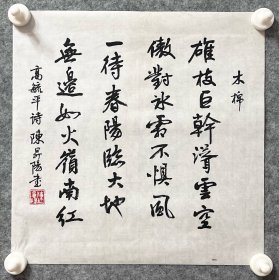 木棉
雄枝巨幹聳雲空
傲對冰霜不懼風
一待春陽臨大地
無邊如火嶺南紅
高毓平詩 陳昇陽書